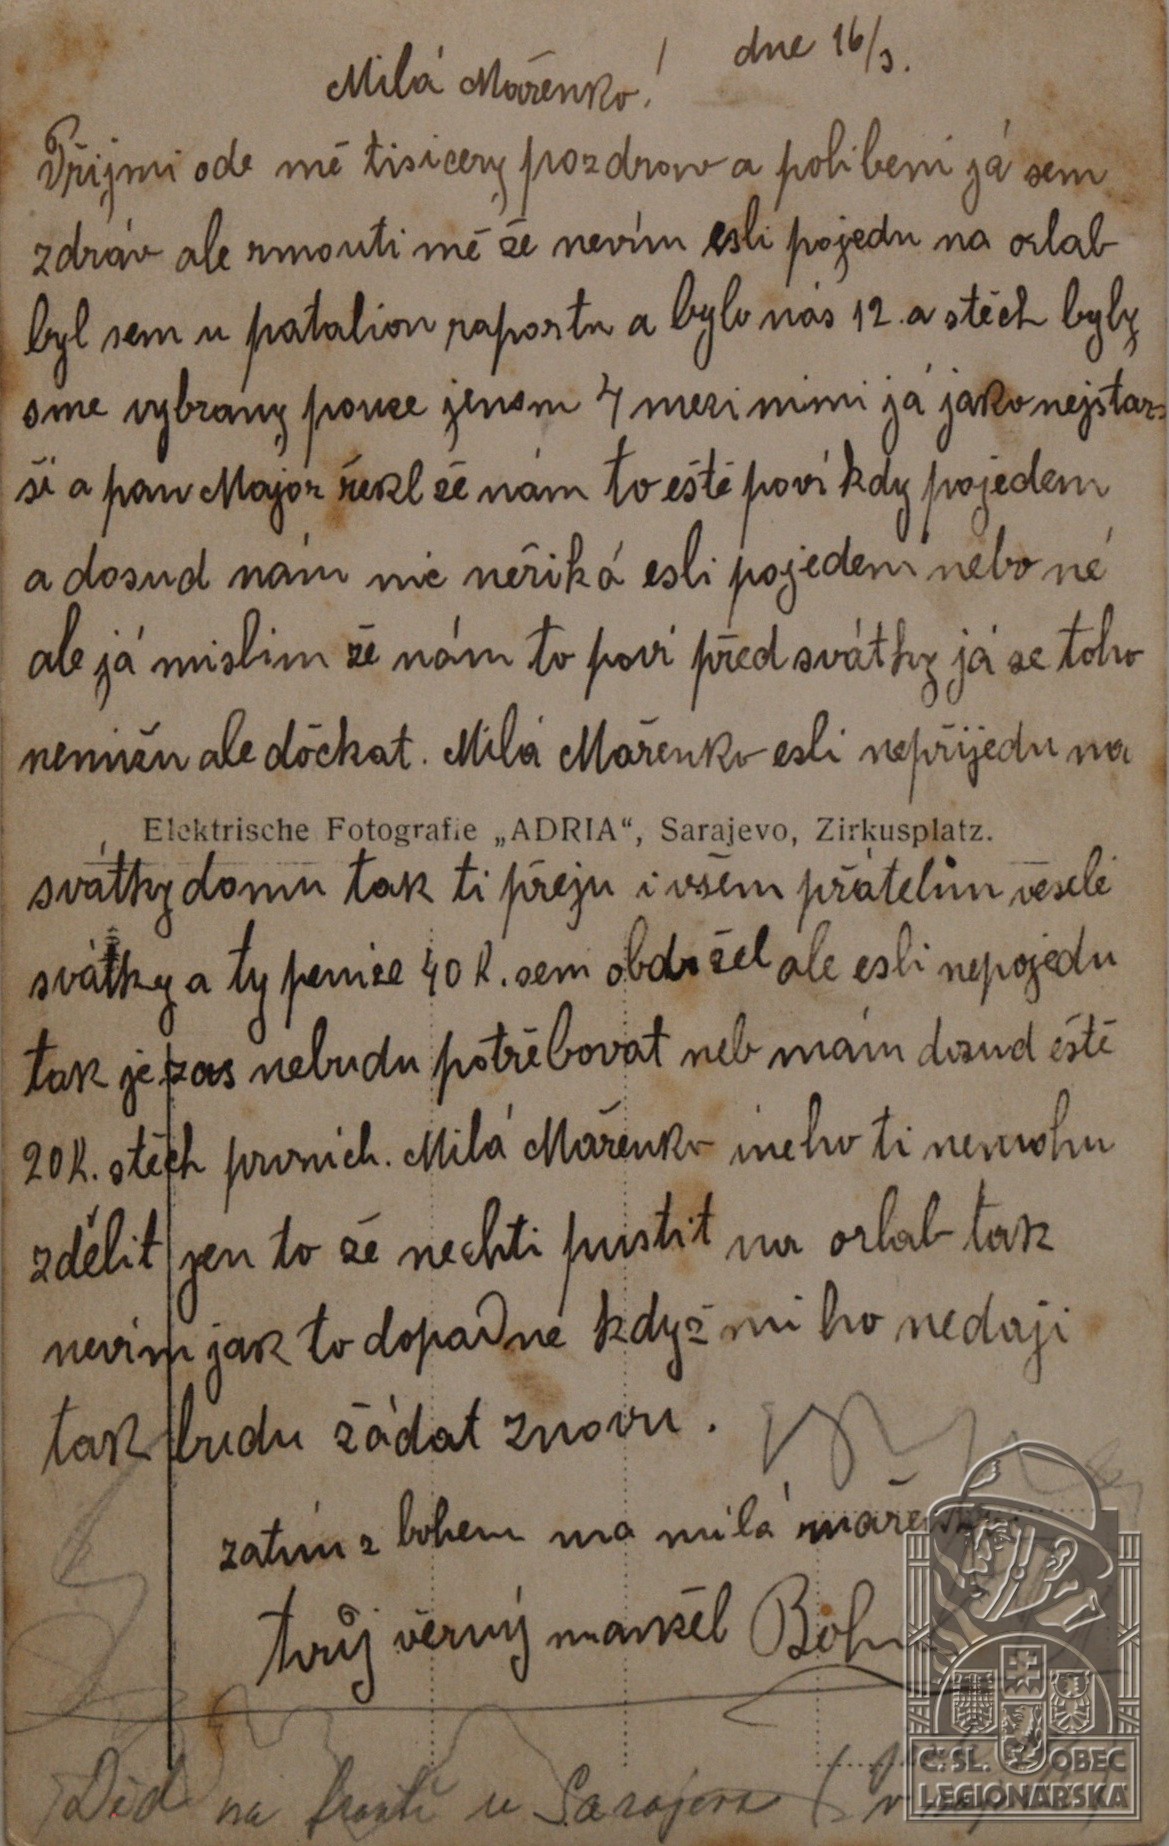 dne 16/3.
Milá Mařenko!
Přijmi ode mě tisicery pozdrav a polibeni já sem
zdráv ale rmoutí mě že nevím esli pojedu na orlab
byl sem u patalion raportu a bylo nás 12. a stěch byly
sme vybrany pouze jenom 4 mezi nimi já jako nejstar-
ší a pan Major řekl že nám to eště poví kdy pojedem
a dosud nám nic neřiká esli pojedem nebo né
ale já mislim že nám to poví před svátky já se toho
nemižu ale dočkat. Milá Mařenko esli nepřijedu na
Elektrische Fotografie „ADRIA“, Sarajevo, Zirkusplatz.
svátky domu tak ti přeju i všem přátelům veselé
svátky a ty penize 40 K. sem obdržel ale esli nepojedu
tak je zas nebudu potřebovat neb mám dosud eště
20 K. stěch prvnich. Milá Mařenko ineho ti nemohu
zdělit jen to že nechti pustit na orlab tak
nevím jak to dopadne když mi ho nedaji
tak budu žádat znovu.
zatím z bohem ma milá mařenko
tvůj věrný manžel
Děd na frontě u Sarajeva
Č. SL. OBEC
LEGIONÁŘSKÁ